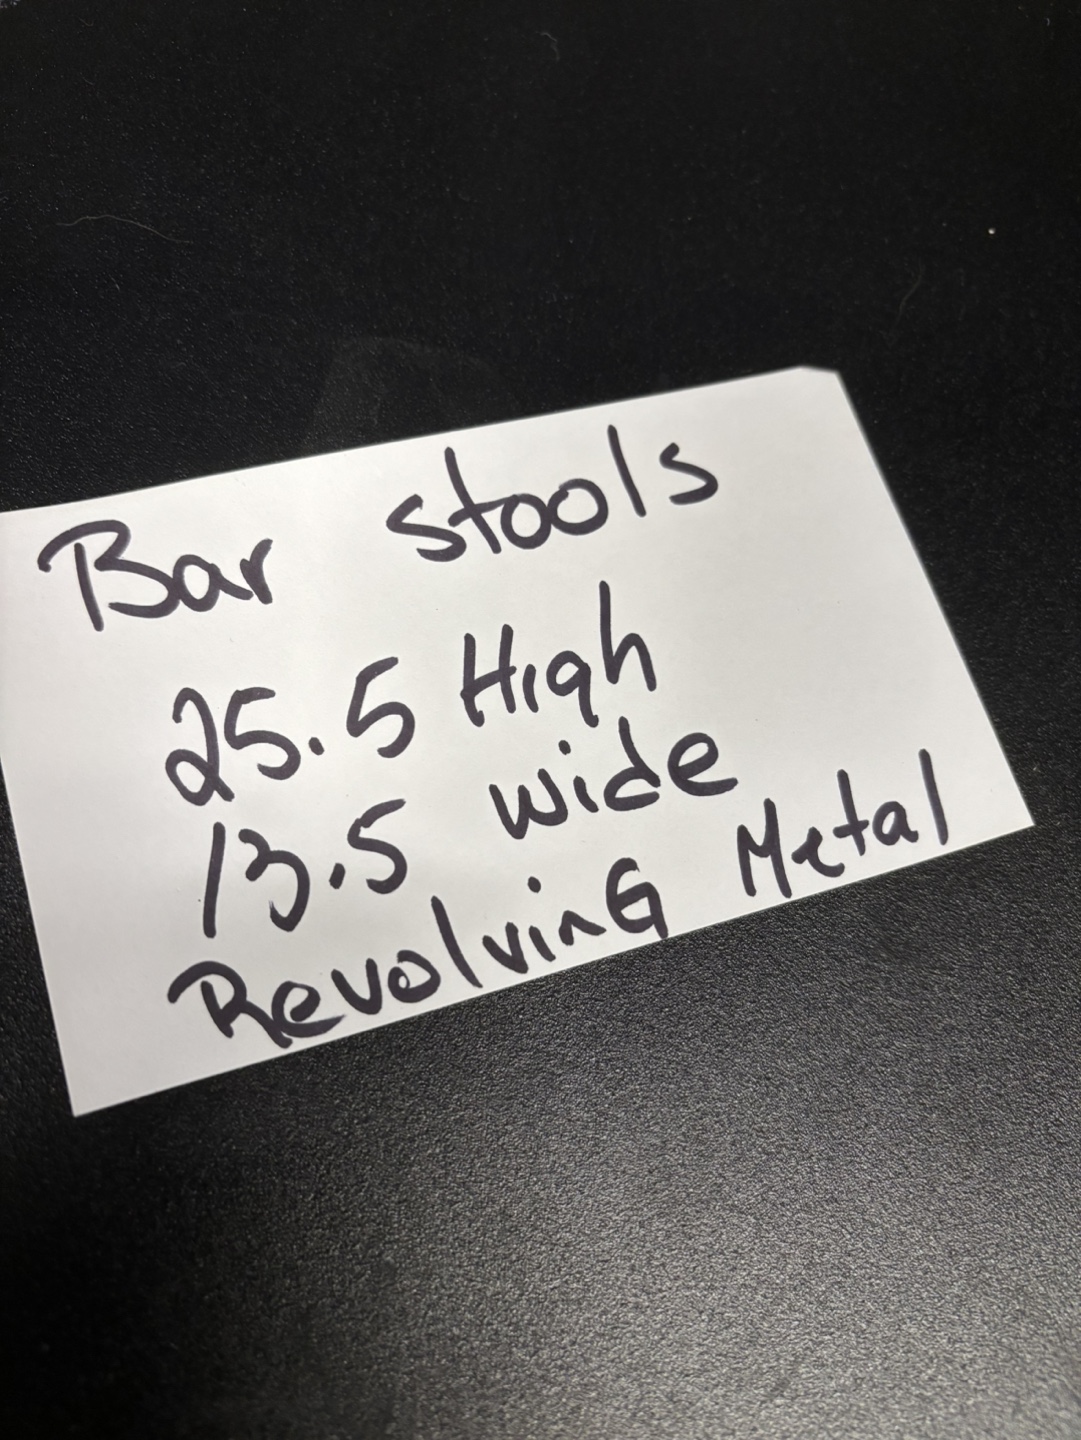 Bar stools
25.5 High
13.5 wide
RevolvinG Metal